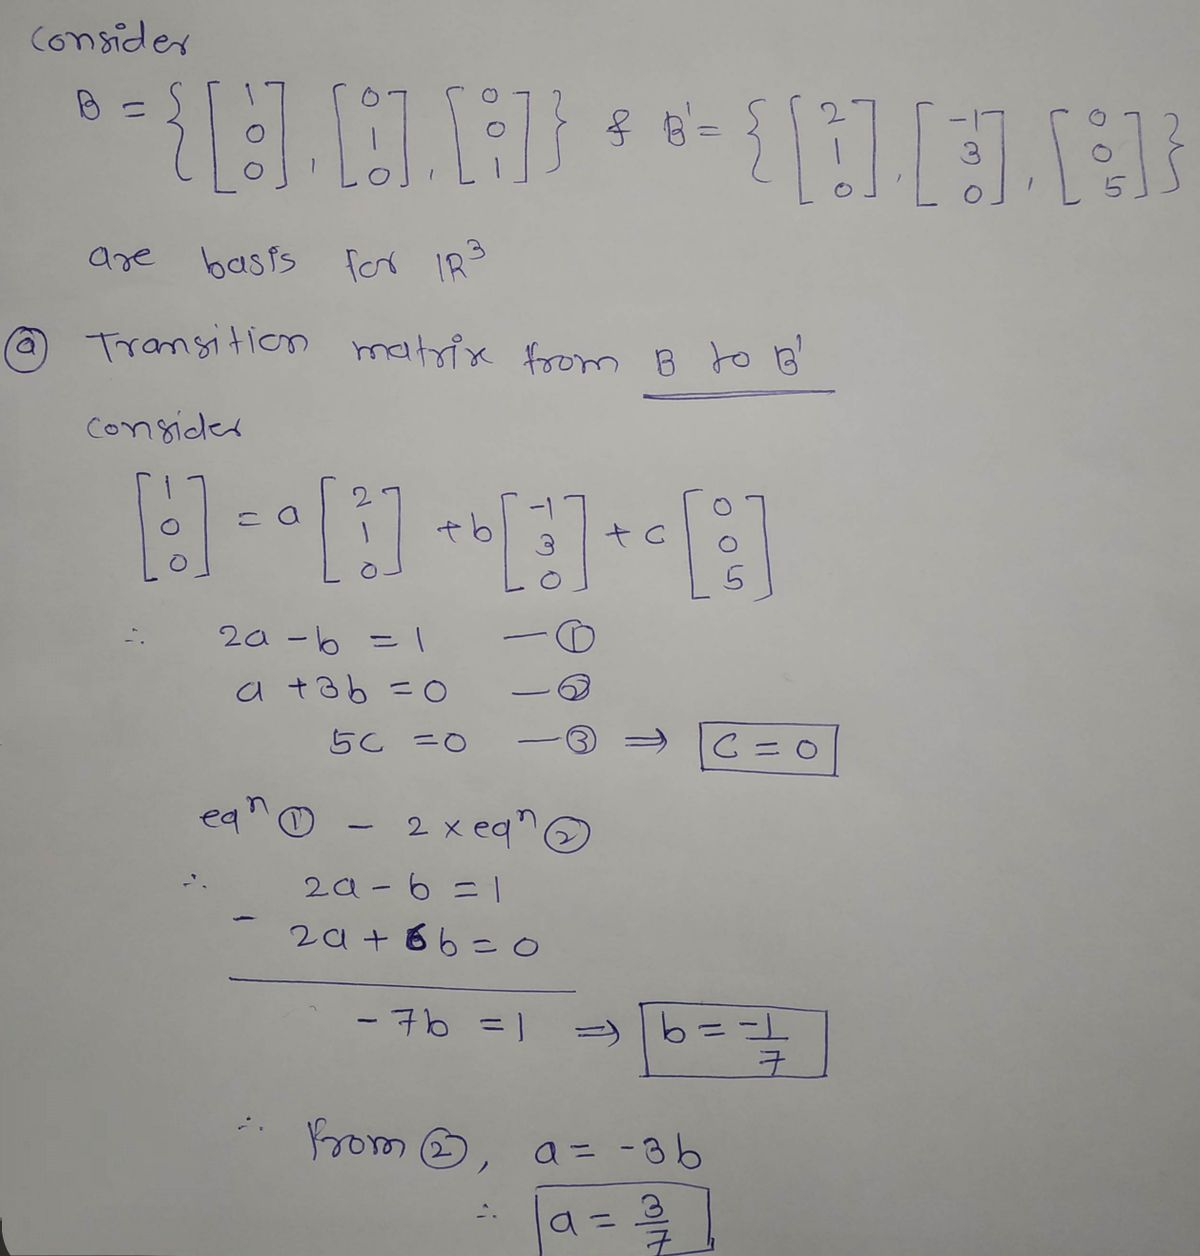 Consider
B = { [1 0 0], [0 1 0], [0 0 1] } & B' = { [2 1 0], [-1 3 0], [0 0 5] }
are basis for IR³
ⓐ Transition matrix from B to B'
Consider
[1 0 0] = a [2 1 0] + b [-1 3 0] + c [0 0 5]
∴ 2a - b = 1 — ①
a + 3b = 0 — ②
5c = 0 — ③ ⇒ C = 0
eqⁿ ① - 2 × eqⁿ ②
∴ 2a - b = 1
- 2a + 6b = 0
- 7b = 1 ⇒ b = -1/7
∴ From ②, a = -3b
∴ a = 3/7